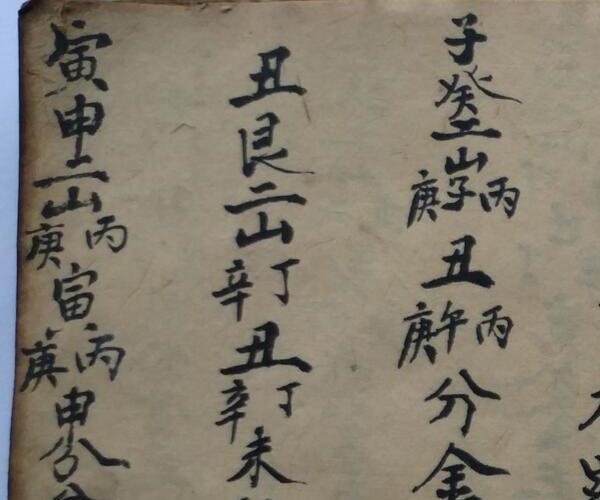 子癸二山丙子庚丑丙午庚分金
丑艮二山丁辛丑丁辛未
寅申二山丙庚寅丙庚申分